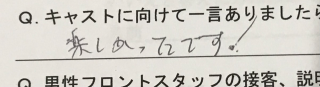 Q. キャストに向けて一言ありましたら
楽しかったです!
Q. 男性フロントスタッフの接客、説明